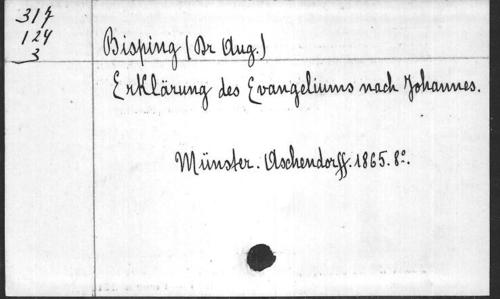 317
124
3
Bisping (Dr Aug.)
Erklärung des Evangeliums nach Johannes.
Münster. Aschendorff. 1865. 8º.